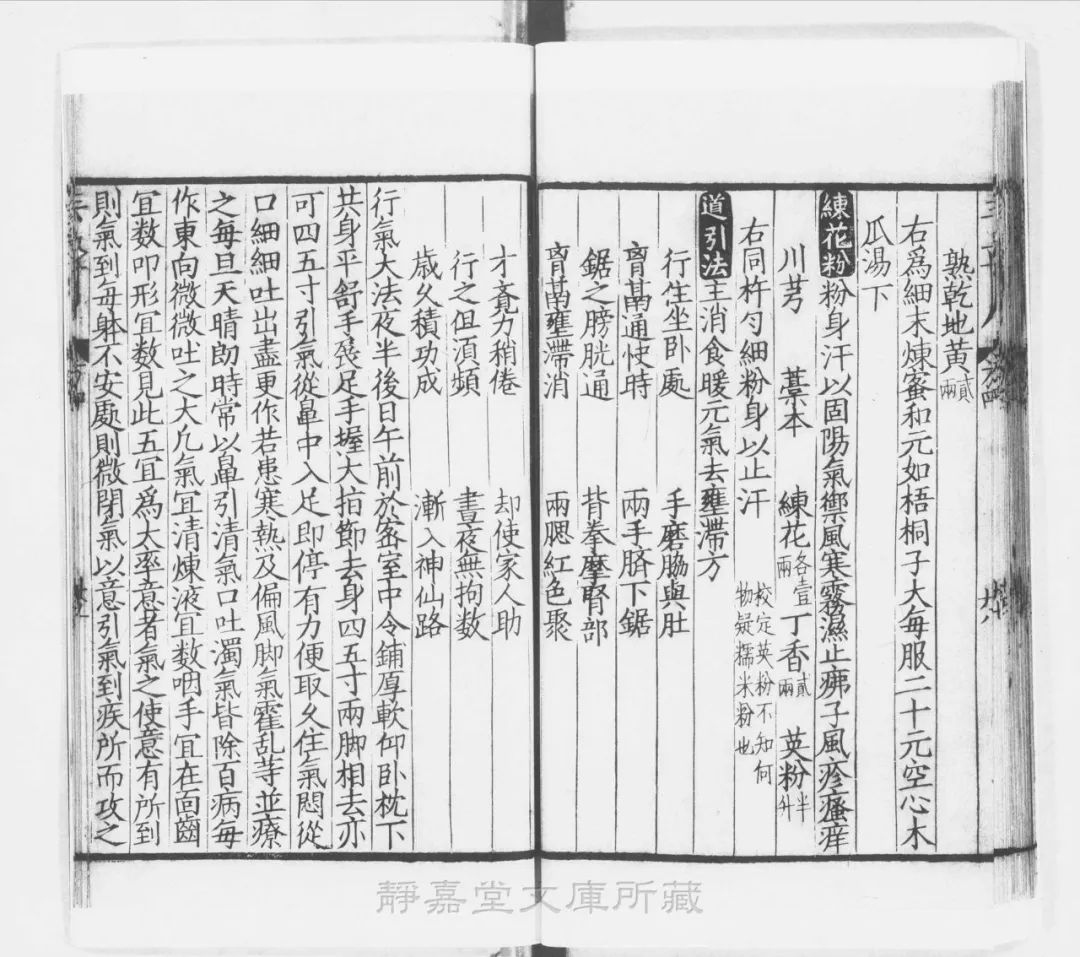 熟乾地黃貳兩
右爲細末煉蜜和元如梧桐子大每服二十元空心木
瓜湯下
練花粉粉身汗以固陽氣禦風寒霧濕止疿子風疹瘙痒
川芎 藁本 練花各壹兩 丁香貳兩 英粉半升
右同杵勻細粉身以止汗 校定英粉不知何
物疑糯米粉也
道引法主消食暖元氣去壅滯方
行住坐卧處 手磨脇與肚
胷鬲通快時 兩手臍下鋸
鋸之膀胱通 背拳摩腎部
胷鬲壅滯消 兩腮紅色聚
才竟力稍倦 却使家人助
行之但湏頻 晝夜無拘数
歲久積功成 漸入神仙路
行氣大法夜半後日午前於密室中令鋪厚軟仰卧枕下
共身平舒手展足手握大拍節去身四五寸兩脚相去亦
可四五寸引氣從鼻中入足即停有力便取久住氣悶從
口細細吐出盡更作若患寒熱及偏風脚氣霍乱等並療
之每旦天晴朗時常以鼻引清氣口吐濁氣皆除百病每
作東向微微吐之大凢氣冝清煉液冝数咽手冝在面齒
冝数叩形冝数見此五冝爲大率意者氣之使意有所到
則氣到每躰不安處則微閉氣以意引氣到疾所而攻之
靜嘉堂文庫所藏